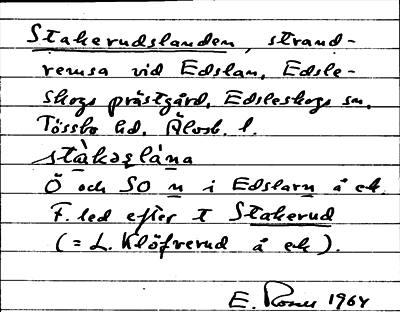 Stakerudslanden, strand-
remsa vid Edslan, Edsle-
skogs prästgård, Edsleskogs sn,
Tössbo hd, Älvsb. l.
stàkəslána
Ö och SO n i Edslarn å ek.
F. led efter t Stakerud
(= L. Klöfverud å ek).
E. 1964